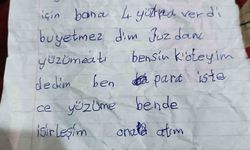 için bana 4 yüz verdi
bu yetmez dim Juzdanı
yüzüme atı bensin köteyim
dedim ben para iste
ce yüzüme bende
isirleşim onada atım